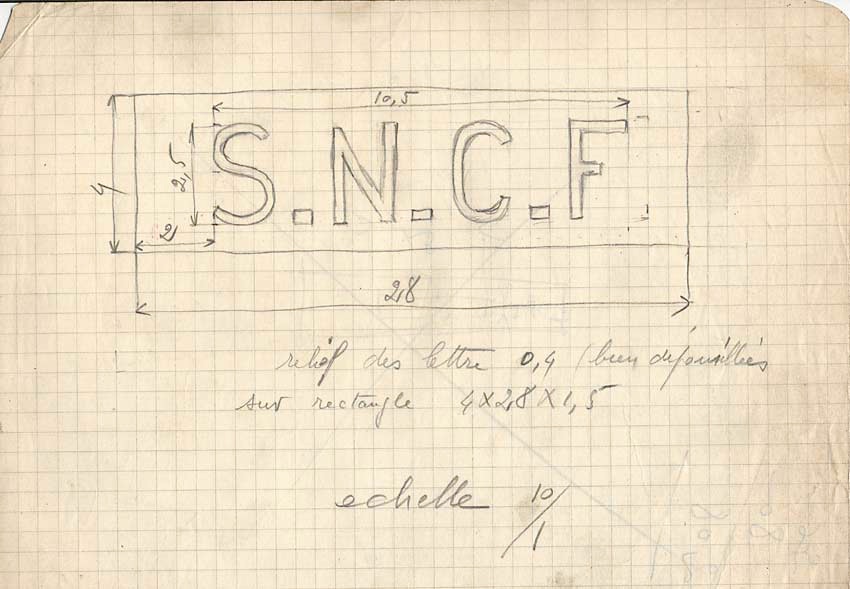 10,5
S.N.C.F
2,5
4
2
28
relief des lettre 0,4 (bien dépouillées
sur rectangle 4x28x1,5
echelle 10/1